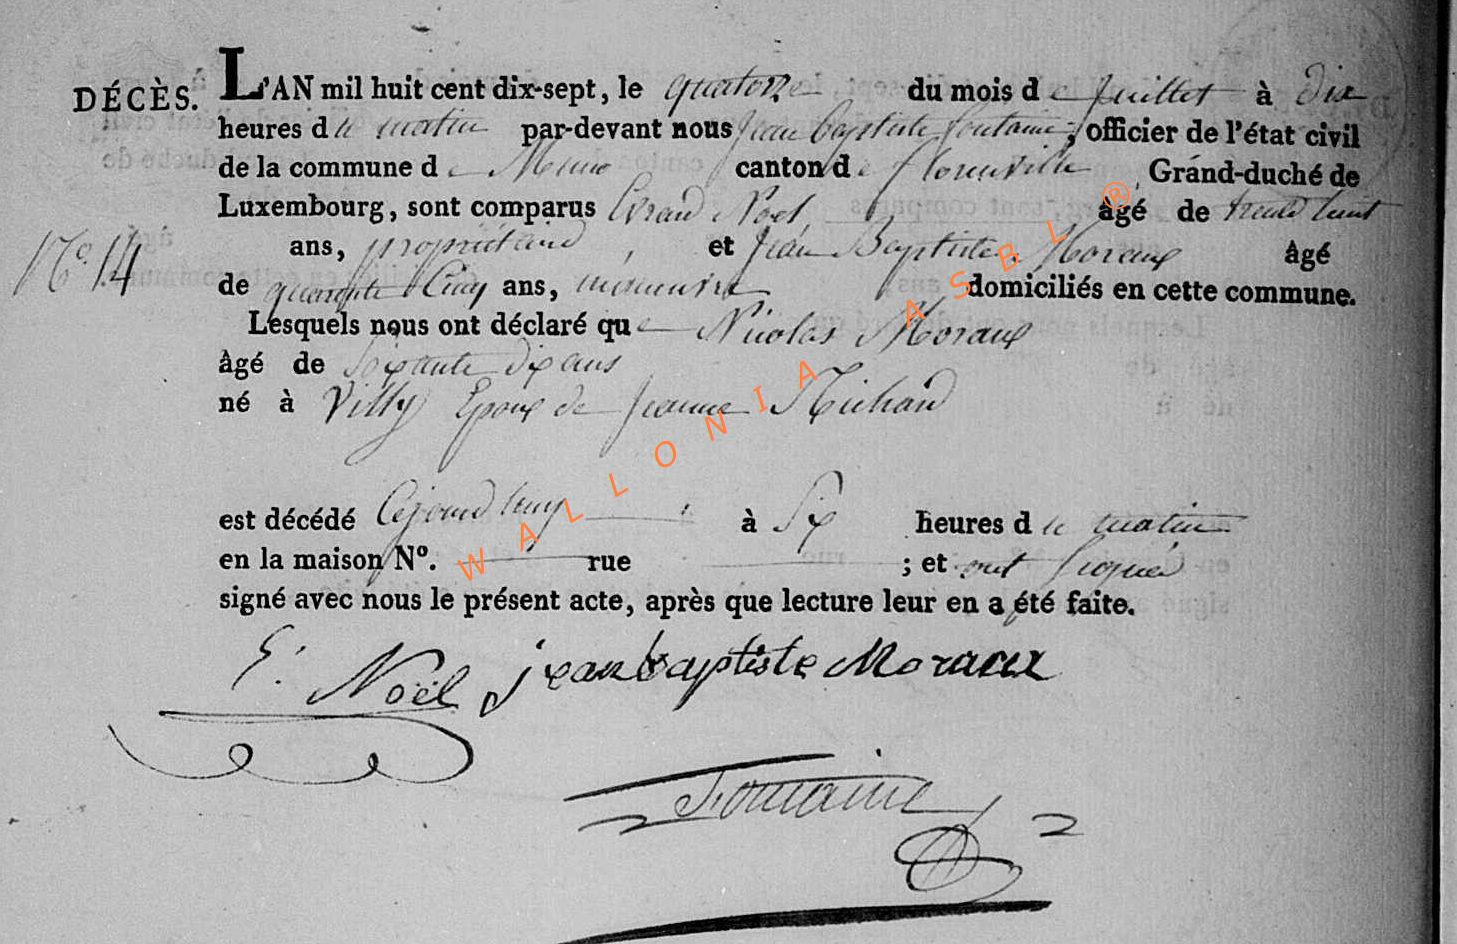 DÉCÈS. L'AN mil huit cent dix-sept, le quatorze du mois de Juillet à dix
heures du matin par-devant nous Jean Baptiste fontaine, officier de l'état civil
de la commune de Muno canton de florenville, Grand-duché de
Luxembourg, sont comparus Evrard Noel âgé de trente huit
ans, propriétaire, et Jean Baptiste Moraux âgé
N.º 14
de quarante Cinq ans, domiciliés en cette commune.
Lesquels nous ont déclaré que Nicolas Moraux
âgé de soixante dix ans
né à Villy Epoux de Jeanne Richard
est décédé Cejourd'huy à Six heures du matin
en la maison Nº. rue ; et ont signé
signé avec nous le présent acte, après que lecture leur en a été faite.
E. Noël jean baptiste Moraux
Fontaine
WALLONIA ASBL ®